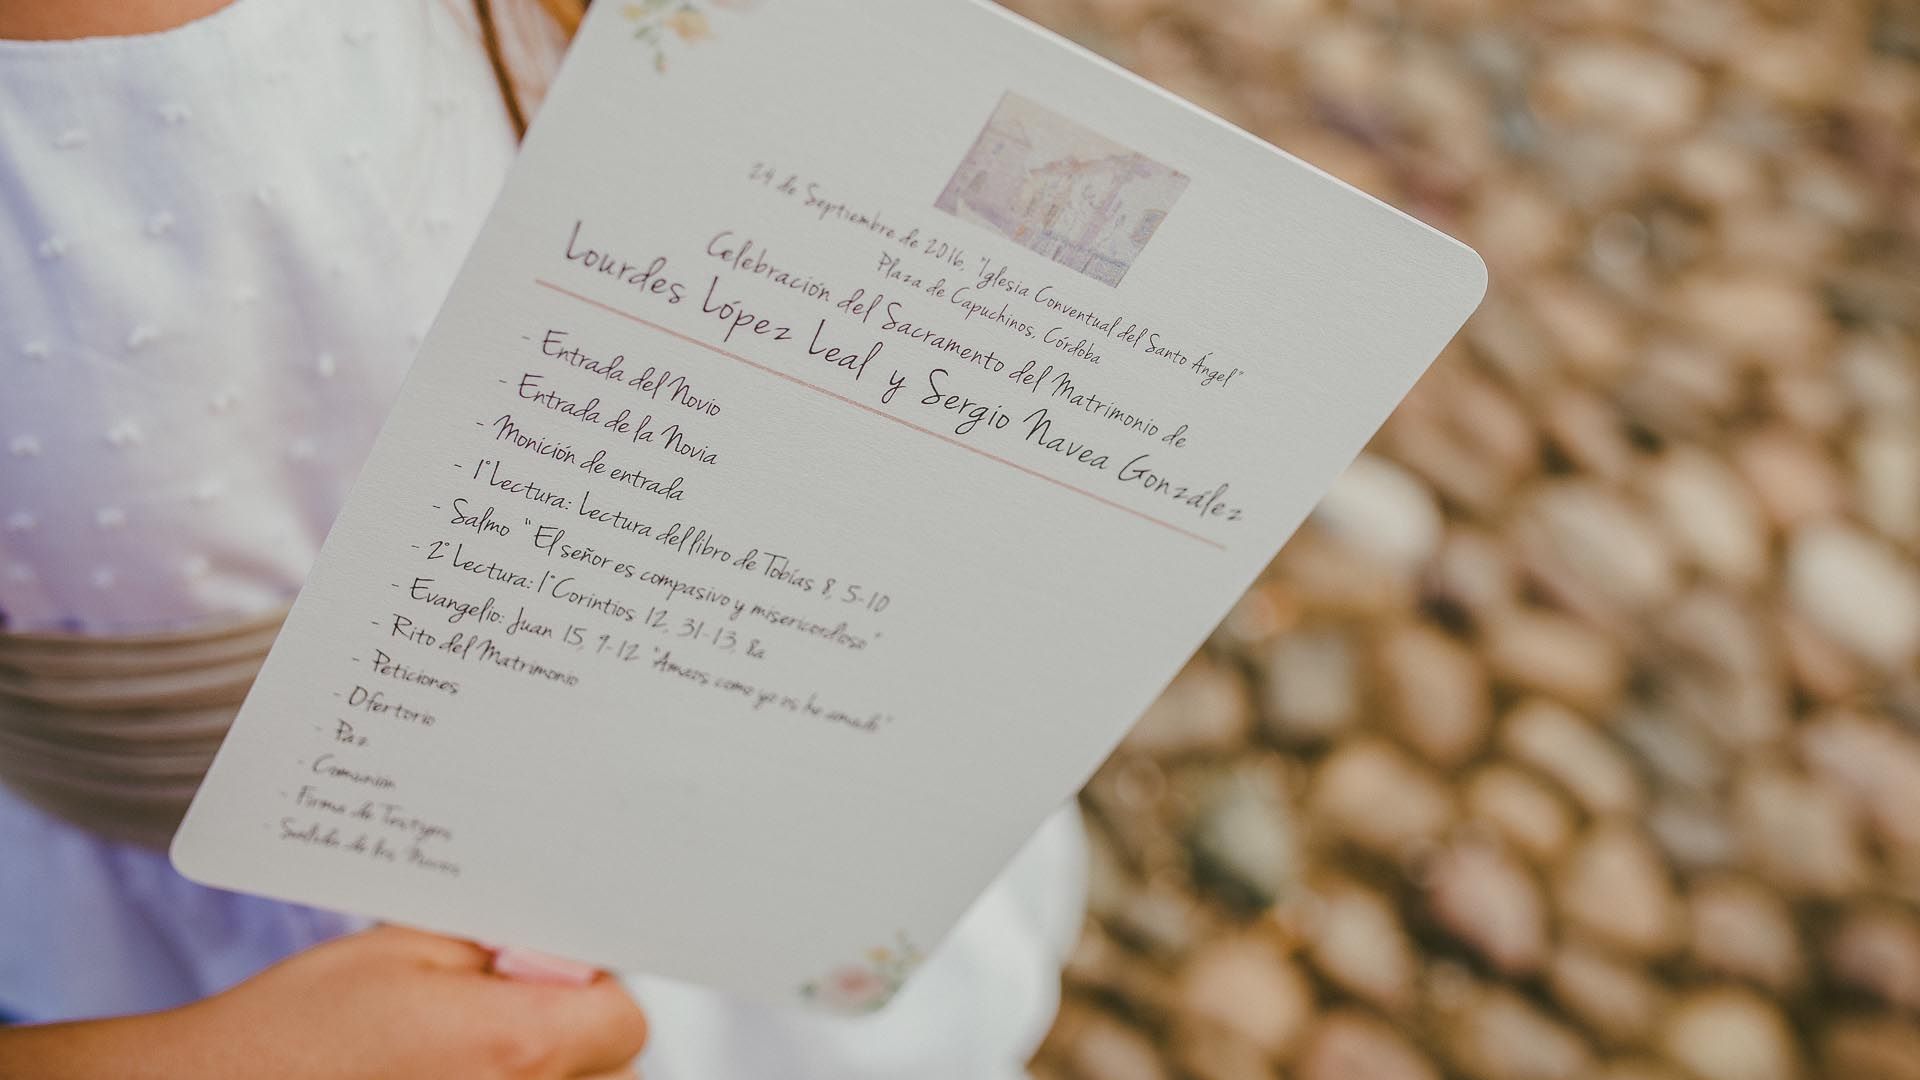 24 de Septiembre de 2016, "Iglesia Conventual del Santo Ángel"
Plaza de Capuchinos, Córdoba
Celebración del Sacramento del Matrimonio de
Lourdes López Leal y Sergio Navea González
- Entrada del Novio
- Entrada de la Novia
- Monición de entrada
- 1° Lectura: Lectura del libro de Tobías 8, 5-10
- Salmo "El señor es compasivo y misericordioso"
- 2° Lectura: 1° Corintios 12, 31-13, 8a
- Evangelio: Juan 15, 9-12 "Amaos como yo os he amado"
- Rito del Matrimonio
- Peticiones
- Ofertorio
- Paz
- Comunión
- Firma de Testigos
- Salida de los Novios